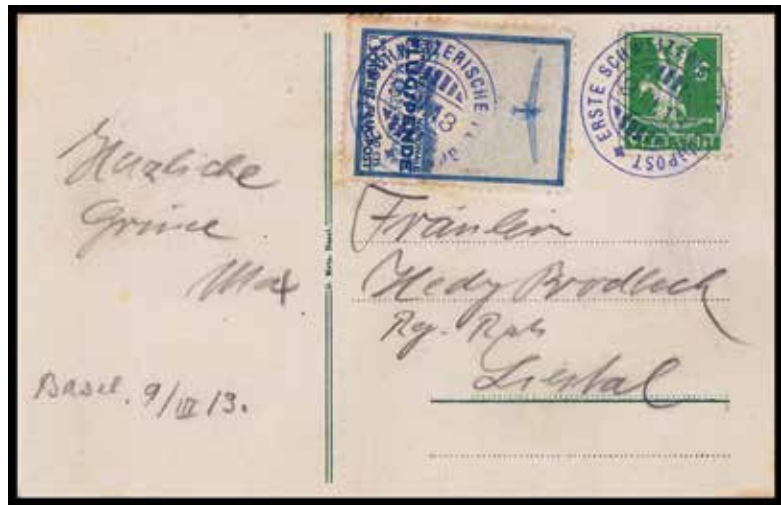 Herzliche
Grüsse
Max
Basel. 9/III 13.
SCHWEIZERISCHE
FLUGSPENDE
13
ERSTE SCHWEIZERISCHE FLUGPOST
5
Fräulein
Hedy Brodbeck
Reg. Rats
Liestal
Basel.